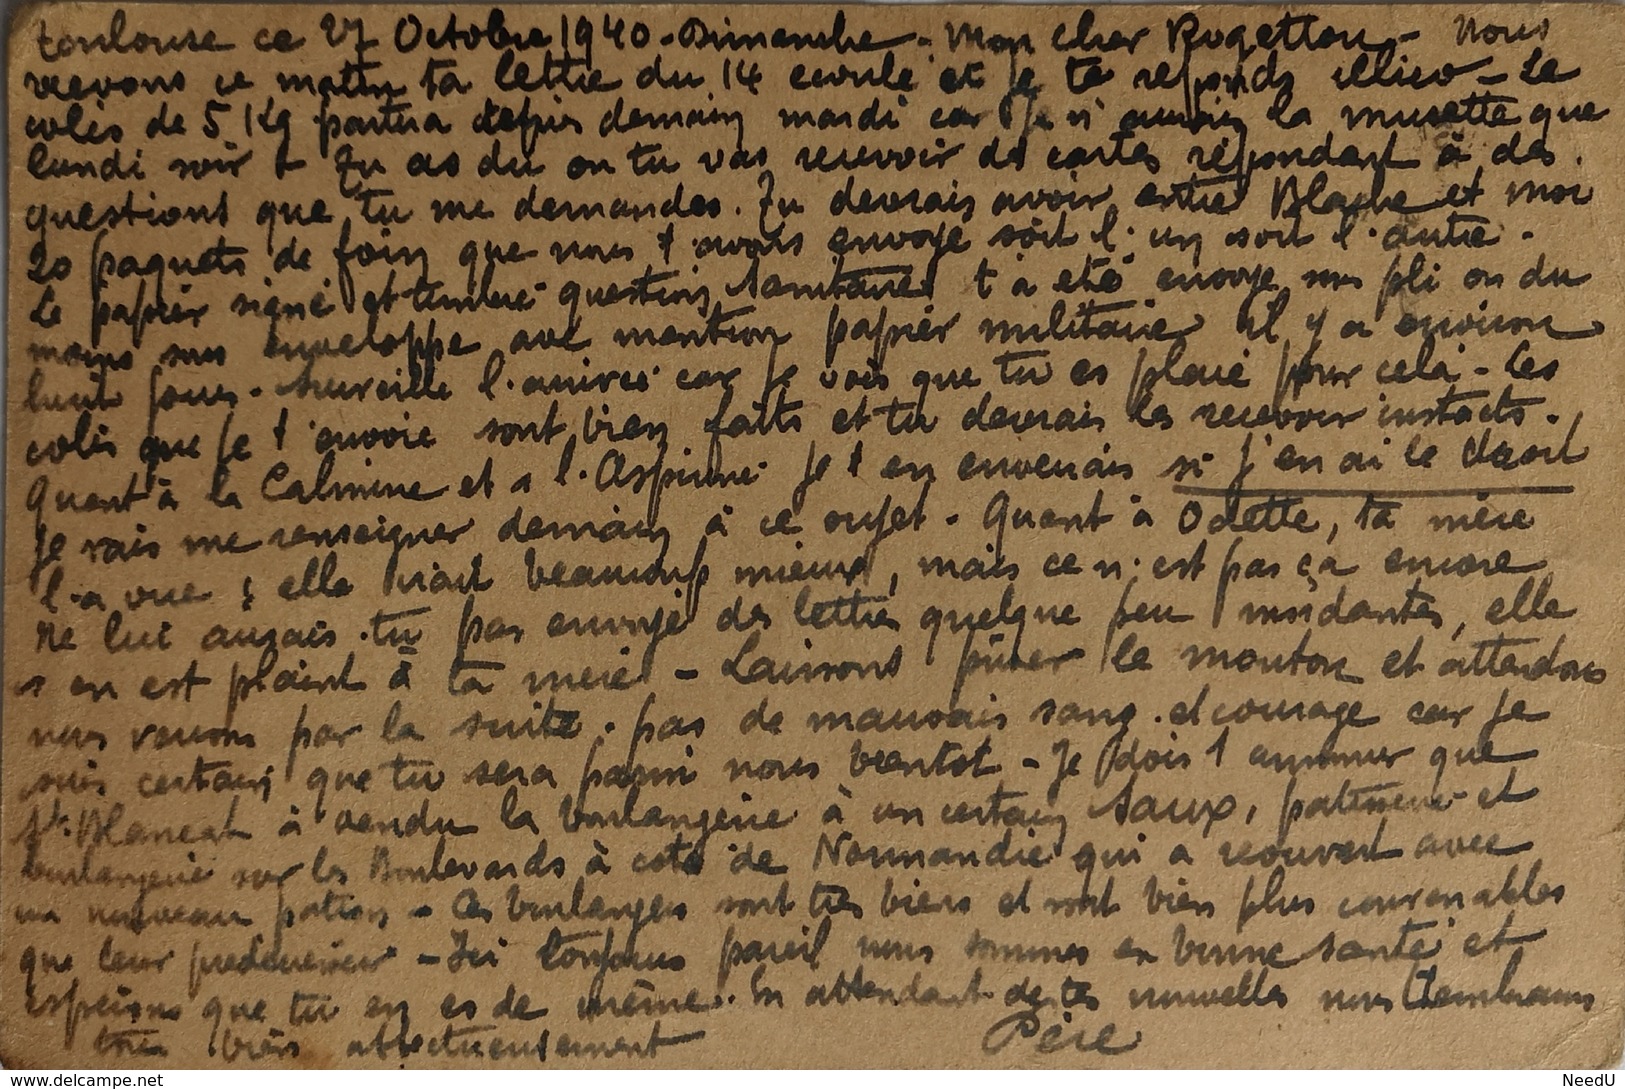 Toulouse ce 27 Octobre 1940 - Dimanche - Mon cher Rogetton - Nous
recevons ce matin ta lettre du 14 écoulé et je te réponds illico - Le
colis de 5 Kg partira après demain mardi car je n'aurai la musette que
lundi soir - Tu as du ou tu vas recevoir des cartes répondant à des
questions que tu me demandes. Tu devrais avoir, entre Blanche et moi
20 paquets de foin que nous t'avons envoyé soit l'un soit l'autre.
Le papier signé et timbré question sanitaire t'a été envoyé sous pli ou du
moins sous enveloppe avec mention papier militaire il y a environ
huit jours - Surveille l'arrivée car je vois que tu es placé pour cela - Les
colis que je t'envoie sont bien faits et tu devrais les recevoir intacts.
Quant à la Calmine et a l'Aspirine je t'en enverrais si j'en ai le droit
Je vais me renseigner demain à ce sujet - Quant à Odette, ta mère
l'a vue ; elle irait beaucoup mieux, mais ce n'est pas ça encore
Ne lui aurais tu pas envoyé des lettres quelque peu mordantes, elle
s'en est plaint à ta mère - Laissons pisser le mouton et attendons
nous verrons par la suite. pas de mauvais sang et courage car je
suis certain que tu sera parmi nous bientot - Je dois t'annoncer que
St. Blancat à vendu la boulangerie à un certain Saux, patisserie et
boulangerie sur les Boulevards à coté de Normandie qui a réouvert avec
un nouveau patron - Ces boulangers sont très biens et sont bien plus convenables
que leur prédécesseur - Ici toujours pareil nous sommes en bonne santé et
espérons que tu en es de même. En attendant de tes nouvelles nous t'embrassons
tous bien affectueusement Père
NeedU